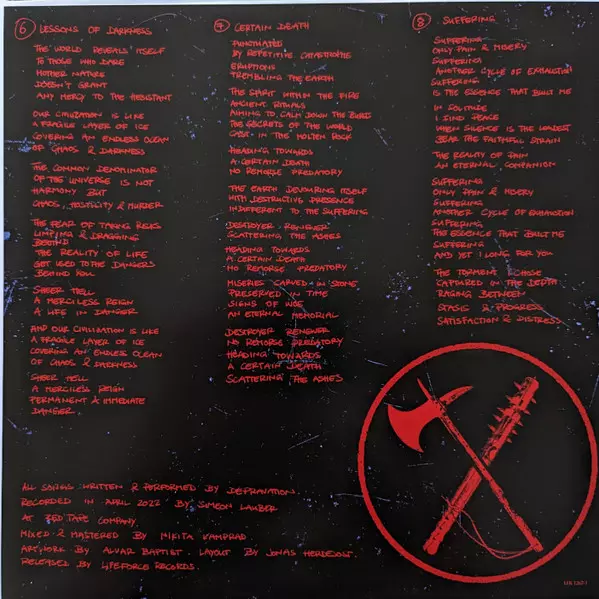 6 LESSONS OF DARKNESS
THE WORLD REVEALS ITSELF
TO THOSE WHO DARE
MOTHER NATURE
DOESN'T GRANT
ANY MERCY TO THE HESITANT
OUR CIVILIZATION IS LIKE
A FRAGILE LAYER OF ICE
COVERING AN ENDLESS OCEAN
OF CHAOS & DARKNESS
THE COMMON DENOMINATOR
OF THE UNIVERSE IS NOT
HARMONY BUT
CHAOS, HOSTILITY & MURDER
THE FEAR OF TAKING RISKS
LIMPING & DRAGGING
BEHIND
THE REALITY OF LIFE
GET USED TO THE DANGERS
BEHIND YOU
SHEER HELL
A MERCILESS REIGN
A LIFE IN DANGER
AND OUR CIVILIZATION IS LIKE
A FRAGILE LAYER OF ICE
COVERING AN ENDLESS OCEAN
OF CHAOS & DARKNESS
SHEER HELL
A MERCILESS REIGN
PERMANENT & IMMEDIATE
DANGER.
7 CERTAIN DEATH
PUNCTUATED
BY REPETITIVE CATASTROPHE
ERUPTIONS
TREMBLING THE EARTH
THE SPIRIT WITHIN THE FIRE
ANCIENT RITUALS
AIMING TO CALM DOWN THE BURST
THE SECRETS OF THE WORLD
CAST IN THE MOLTEN ROCK
HEADING TOWARDS
A CERTAIN DEATH
NO REMORSE PREDATORY
THE EARTH DEVOURING ITSELF
WITH DESTRUCTIVE PRESENCE
INDIFFERENT TO THE SUFFERING
DESTROYER RENEWER
SCATTERING THE ASHES
HEADING TOWARDS
A CERTAIN DEATH
NO REMORSE PREDATORY
MISERIES CARVED IN STONE
PRESERVED IN TIME
SIGNS OF WOE
AN ETERNAL MEMORIAL
DESTROYER RENEWER
NO REMORSE PREDATORY
HEADING TOWARDS
A CERTAIN DEATH
SCATTERING THE ASHES
8 SUFFERING
SUFFERING
ONLY PAIN & MISERY
SUFFERING
ANOTHER CYCLE OF EXHAUSTION
SUFFERING
IS THE ESSENCE THAT BUILT ME
IN SOLITUDE
I FIND PEACE
WHEN SILENCE IS THE LOUDEST
BEAR THE FAITHFUL STRAIN
THE REALITY OF PAIN
AN ETERNAL COMPANION
SUFFERING
ONLY PAIN & MISERY
SUFFERING
ANOTHER CYCLE OF EXHAUSTION
SUFFERING
THE ESSENCE THAT BUILT ME
SUFFERING
AND YET I LONG FOR YOU
THE TORMENT I CHOSE
CAPTURED IN THE DEPTH
RAGING BETWEEN
STASIS & PROGRESS
SATISFACTION & DISTRESS
ALL SONGS WRITTEN & PERFORMED BY DEPRAVATION.
RECORDED IN APRIL 2022 BY SIMEON LAUBER
AT RED TAPE COMPANY.
MIXED & MASTERED BY NIKITA KAMPRAD
ARTWORK BY ALVAR BAPTIST. LAYOUT BY JONAS HERDEJOST.
RELEASED BY LIFEFORCE RECORDS.